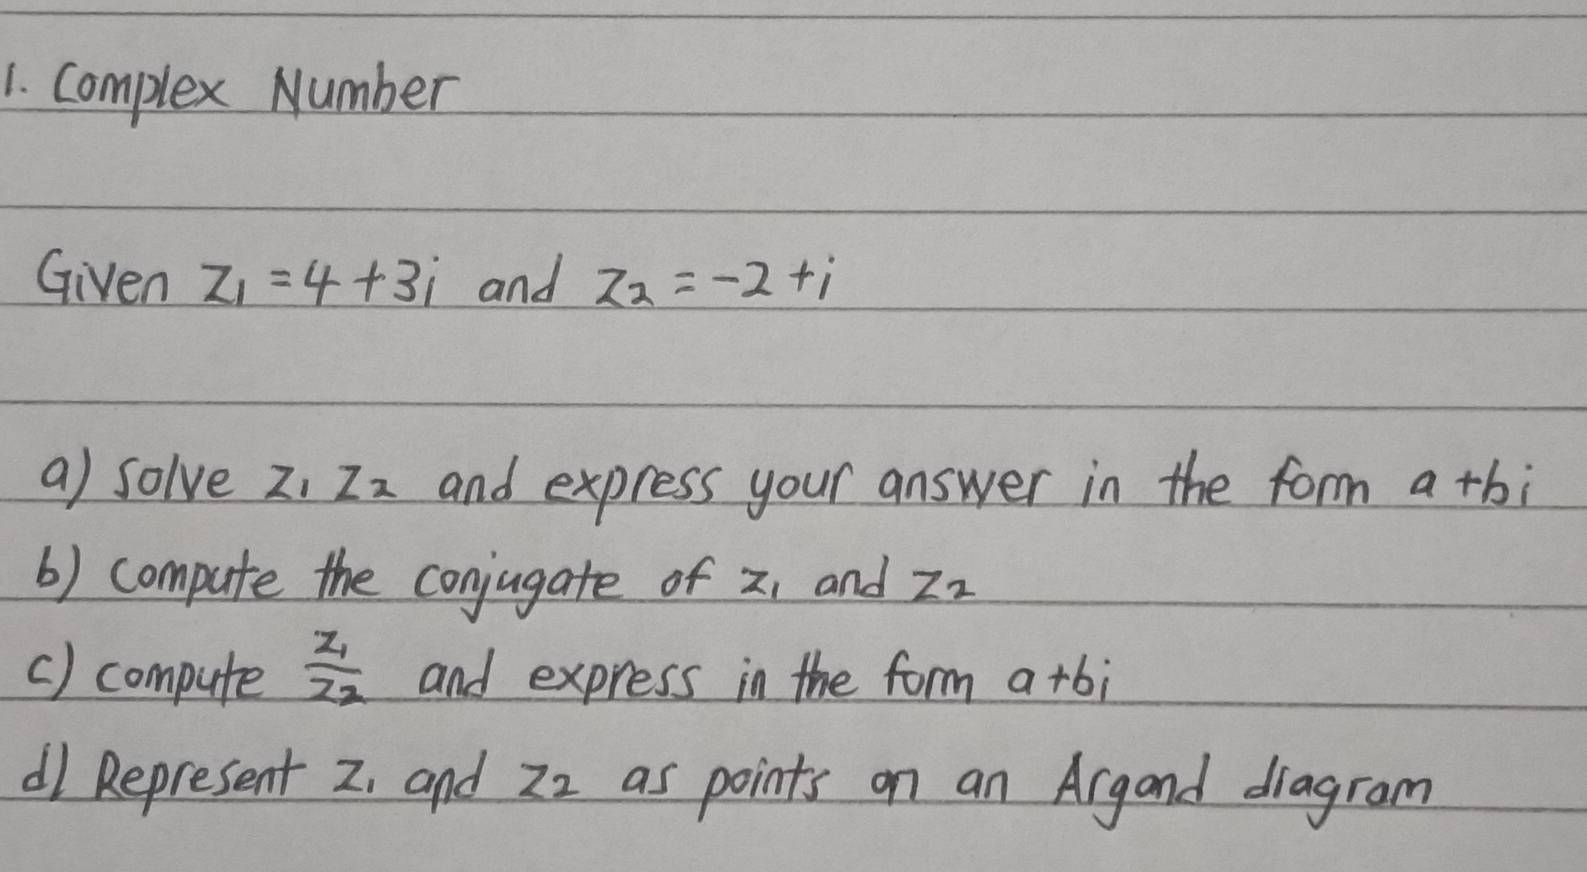 1. Complex Number
Given z₁ = 4 + 3i and z₂ = -2 + i
a) solve z₁ z₂ and express your answer in the form a + bi
b) compute the conjugate of z₁ and z₂
c) compute z₁/z₂ and express in the form a + bi
d) Represent z₁ and z₂ as points on an Argand diagram